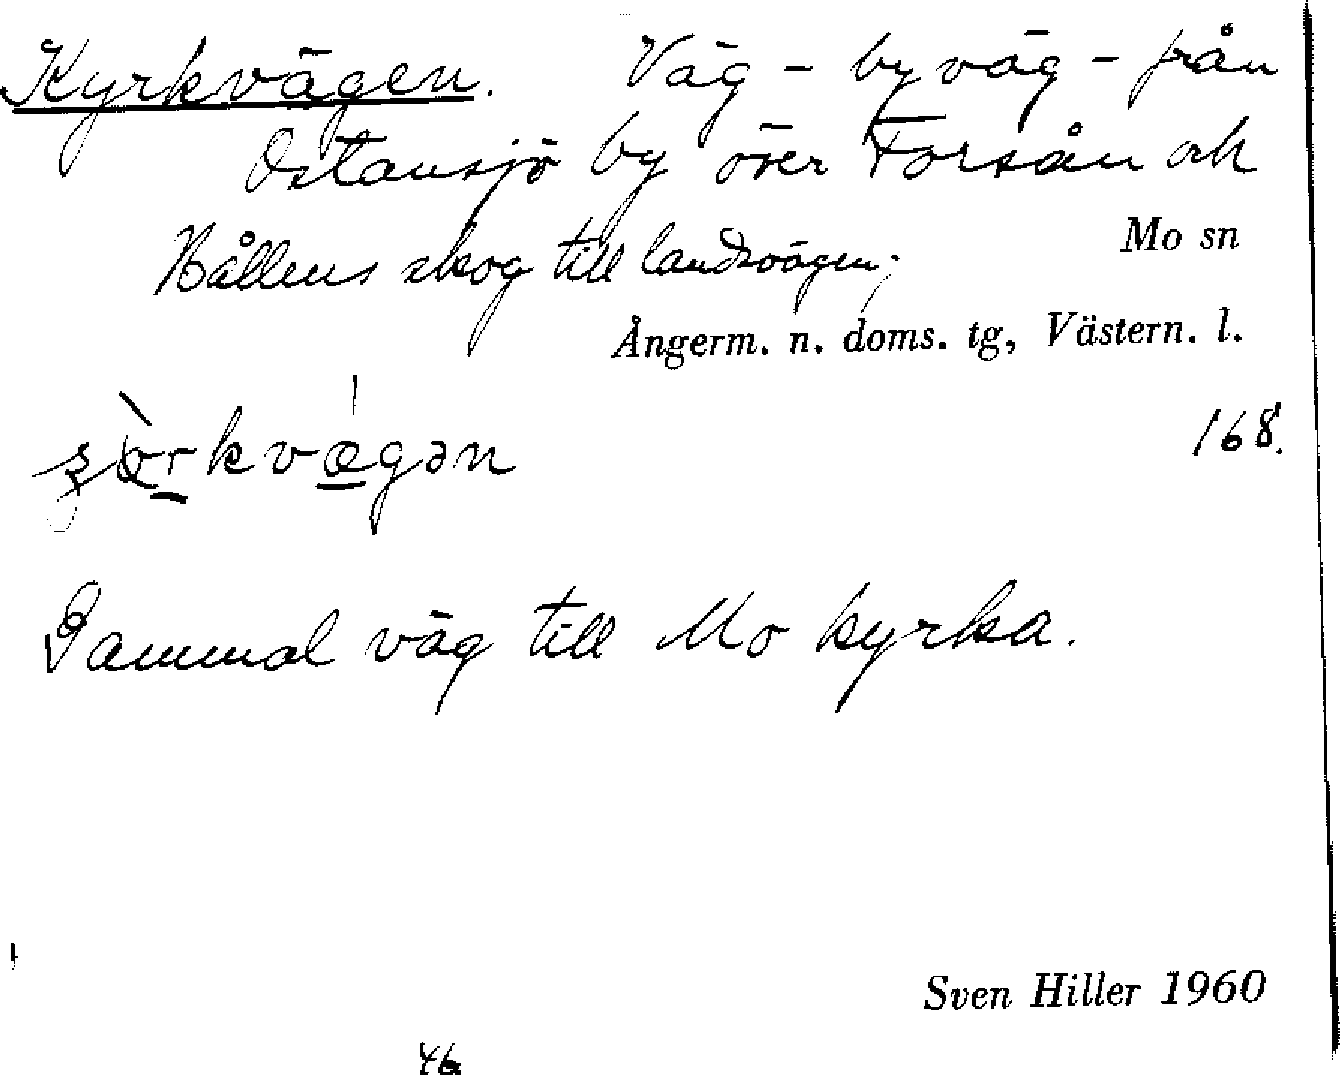 Kyrkvägen. Väg - byväg - från
Östansjö by över Forsån och
Hållens skog till landsvägen;
Mo sn
Ångerm. n. doms. tg, Västern. l.
168.
Gammal väg till Mo kyrka.
Sven Hiller 1960